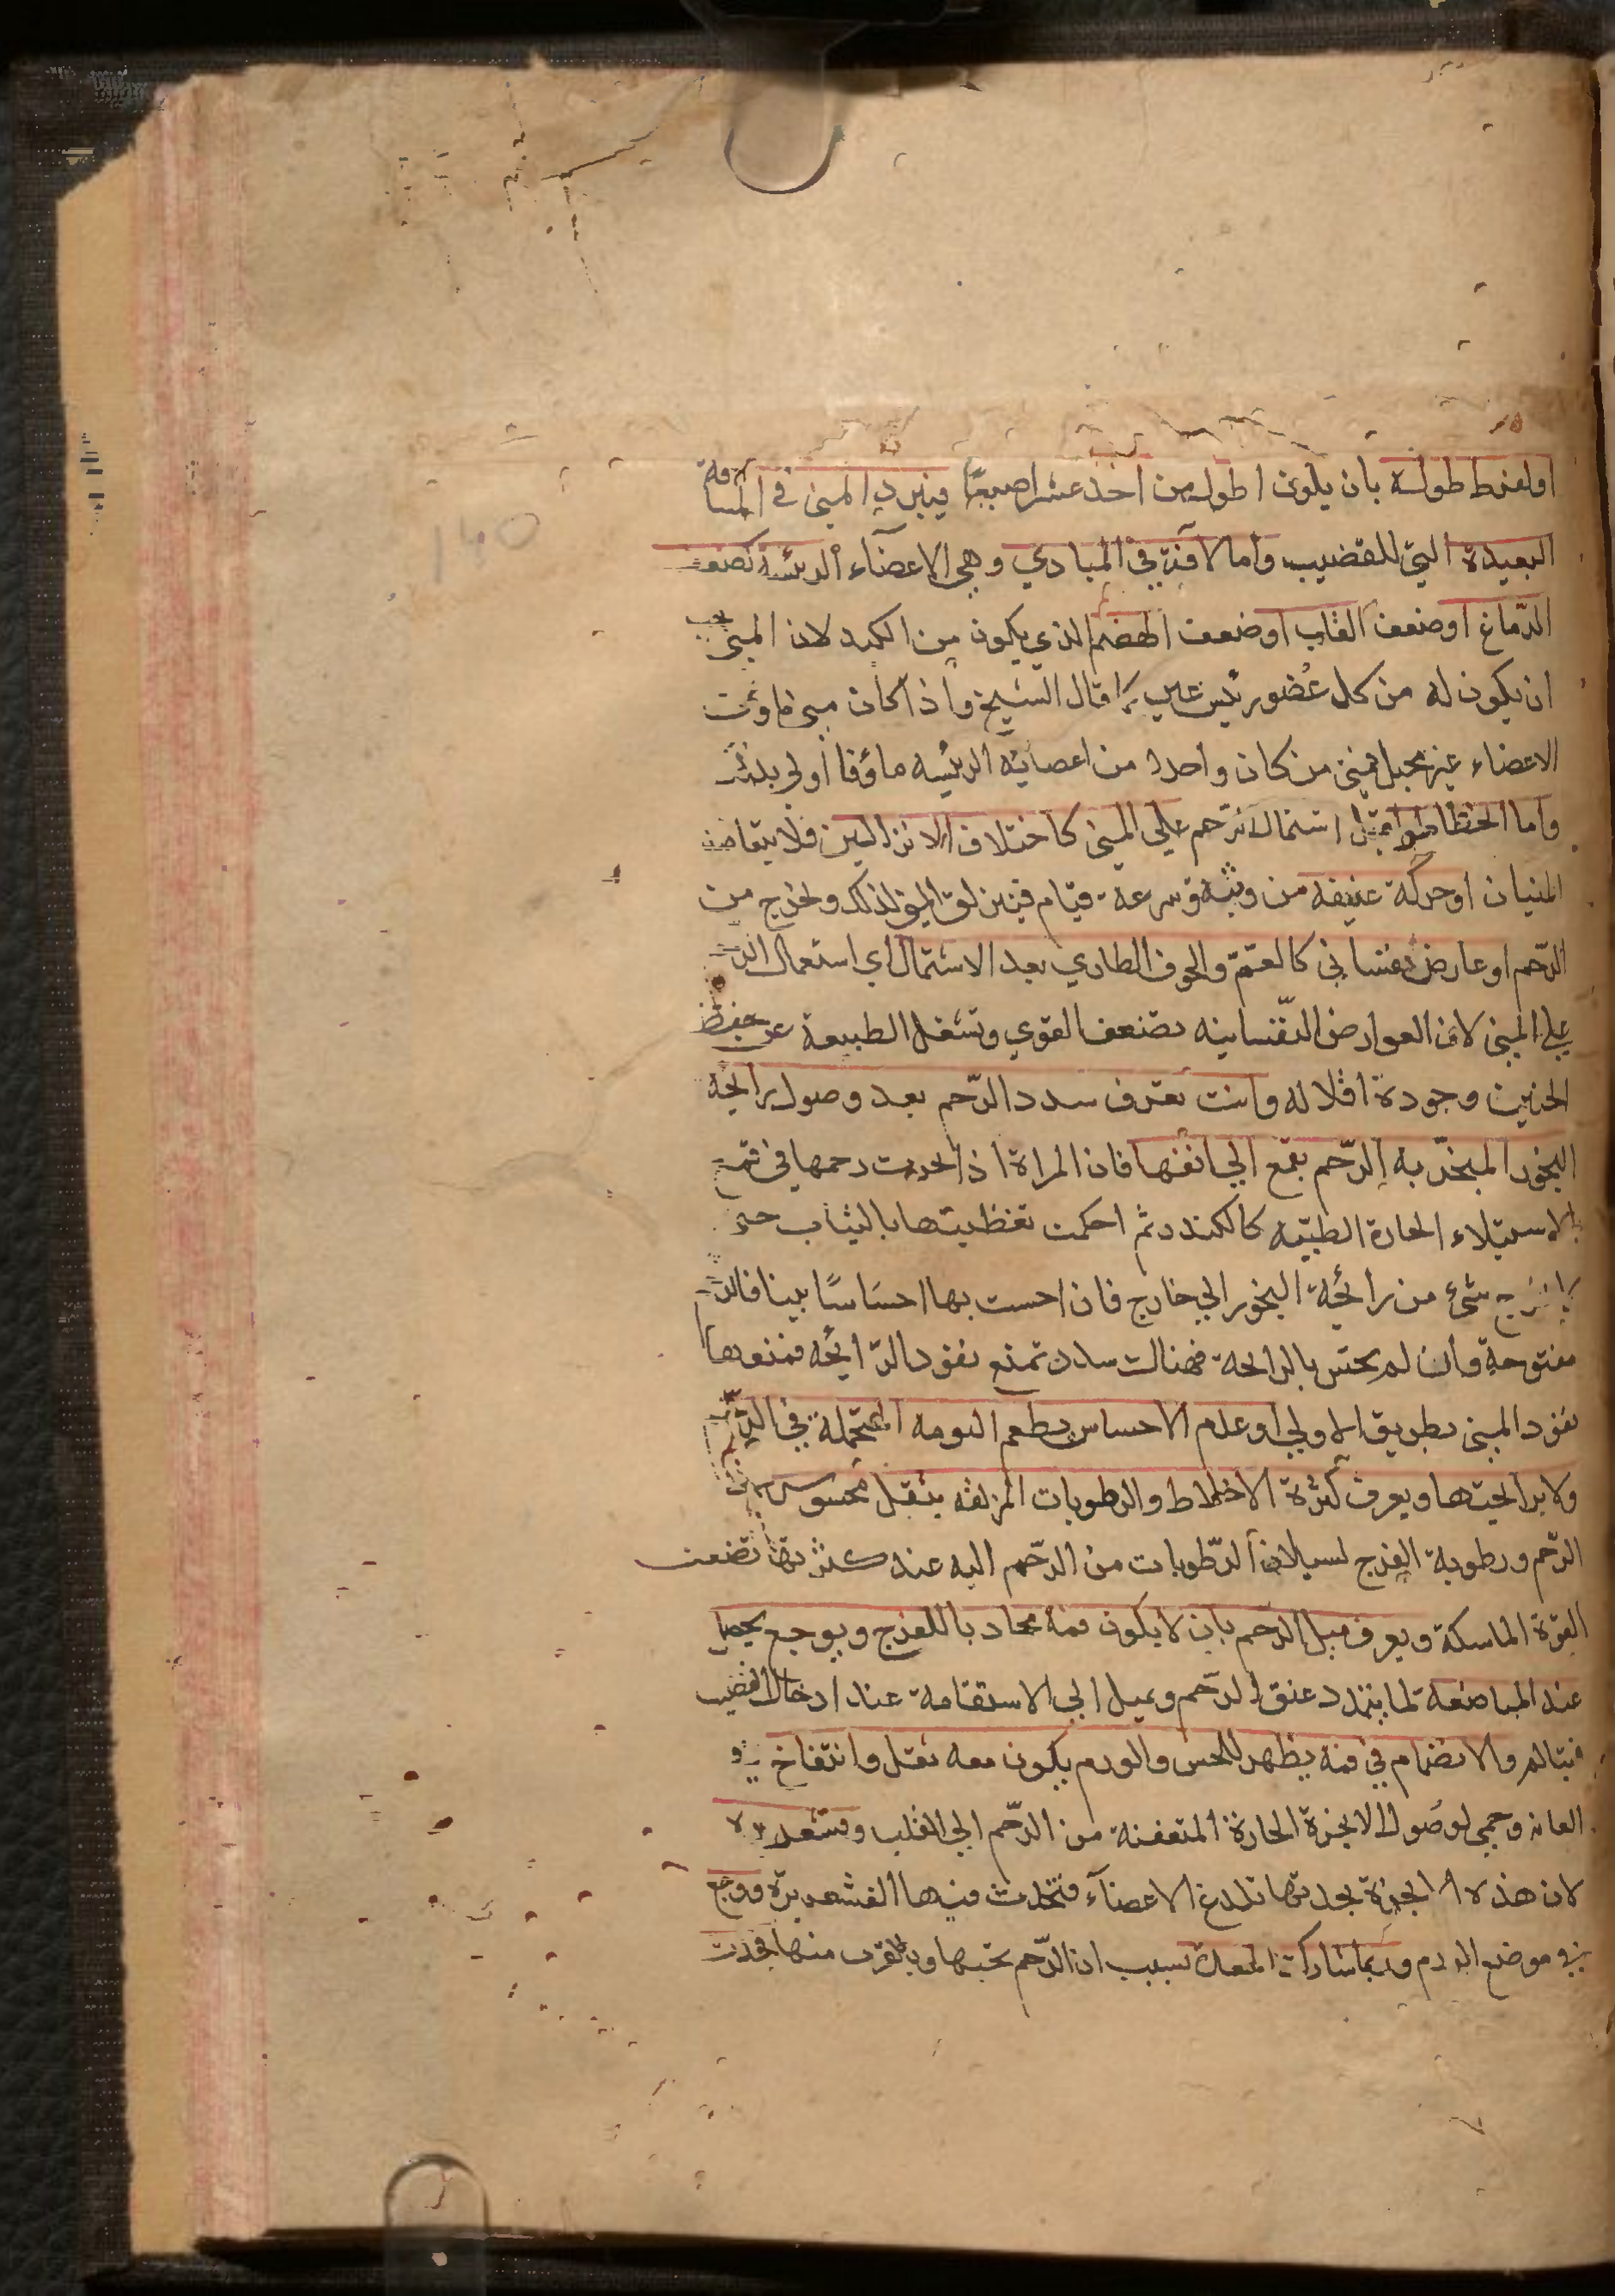 او لفرط طوله بان يكون اطول من احد عشر اصبعا فيبرد المني في المسافة
البعيدة التي للقضيب واما لآفة في المبادي وهي الاعضآء الرئيسة كضعف
الدّماغ او ضعف القلب او ضعف الهضم الذي يكون من الكبد لان المني يجب
ان يكون له من كل عُضو رئيس عين كما قال الشيخ واذا كان مني ماوف
الاعضاء غير محبل فمني من كان واحدا من اعضايه الرئيسه مائوفا اولى بذلك
واما الخطا طرا قبل اشتمال الرّحم علي المني كاختلاف الانزالين فلا يتعاضد
المنيان او حركة عنيفه من وثبة وسرعة قيام فينزلق المني لذلك ويخرج من
الرّحم او عارض نفساني كالغمّ والخوف الطاري بعد الاشتمال اي استعمال الرّ
علي المني لان العوارض النّفسانيه تضعف القوي وتشغل الطبيعة عن حفظ
الجنين وجودة اقلاله وانت تعرف سدد الرّحم بعد وصول رايحه
البخور المبخّر به الرّحم بقمع الي انفها فان المراة اذا بخرت رحمها في قمع
بالاشياء الحارة الطيّبه كالكندر ثم احكمت تغطيتها بالثياب حتى
لا يخرج شئ من رائحة البخور الي خارج فان احست بها احسَاسًا بينا فالرّ
مفتوحة وان لم يحسّ بالرايحة فهناك سدد تمنع نفود الرّائحه فمنعها
نفود المني بطريق الاولي او عدم الاحساس بطعم الثومه المحتملة في الرّ
ولا برايحتها ويعرف كثرة الاخلاط والرطوبات المزلقه بثقل محسوس
الرّحم ورطوبة الفرج لسيلان الرّطوبات من الرّحم اليه عند كثرتها تضعف
القوّة الماسكة ويعرف ميل الرّحم بان لا يكون فمه محاديا للفرج وبوجع يحصل
عند المباضعة لما يتمدد عنق الرّحم ويميل الي الاستقامة عند ادخال القضيب
فيتالم والانضمام في فمه يظهر للحس والورم يكون معه ثقل وانتفاخ في
العانه وحمي لوصُول الابخرة الحارة المتعفنة من الرّحم الي القلب وقشعريرة
لان هذه الابخرة بحدتها تلدغ الاعضآء فتحدث فيها القشعريرة ووجع
في موضع الورم وربما شاركت المعدة بسبب ان الرّحم تحتها وبالقرب منها فحدث